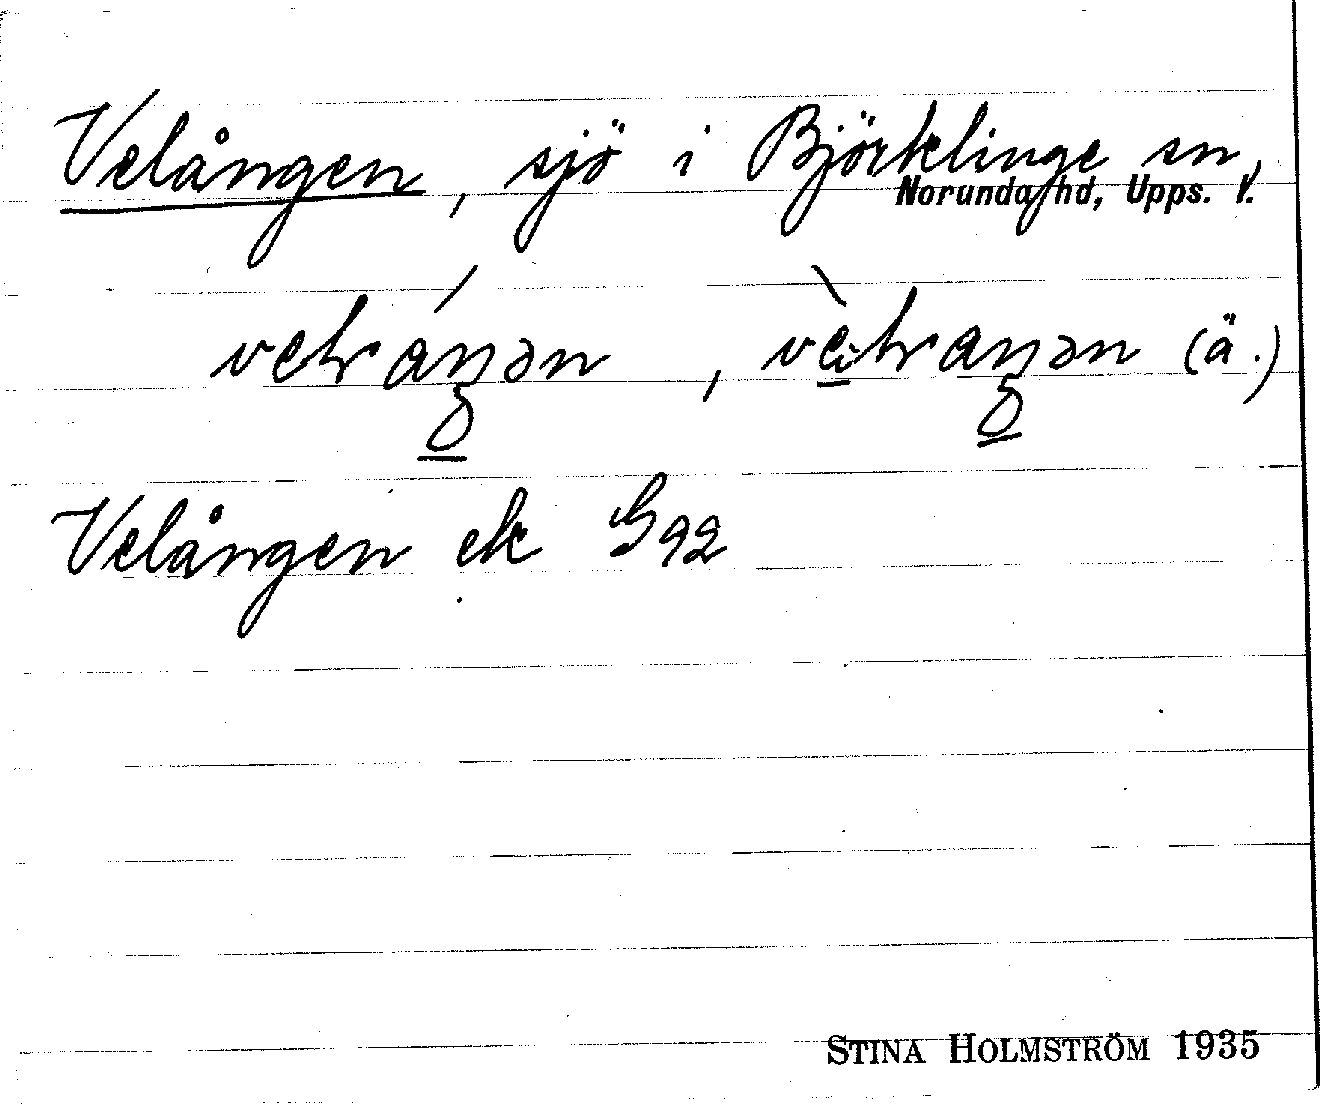 Velången, sjö i Björklinge sn,
Norunda hd, Upps. l.
(ä.)
Velången ek G92
STINA HOLMSTRÖM 1935